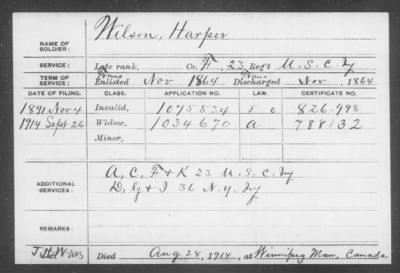 Wilson, Harper
NAME OF SOLDIER:
SERVICE: Late rank, Co. F, 23 Reg't U. S. C. Ify
TERM OF SERVICE: Trans Enlisted Nov 1864 Trans Discharged Nov, 1864
DATE OF FILING. CLASS. APPLICATION NO. LAW. CERTIFICATE NO.
1891 Nov 4 Invalid, 1075534 826.998
1914 Sept 26 Widow, 1034670 a 788132
Minor,
ADDITIONAL SERVICES: A, C, F & K 23 U. S. C. Ify
D, G & I 31 N. Y. Ify
REMARKS:
Died Aug 28, 1914, at Winnipeg Man, Canada